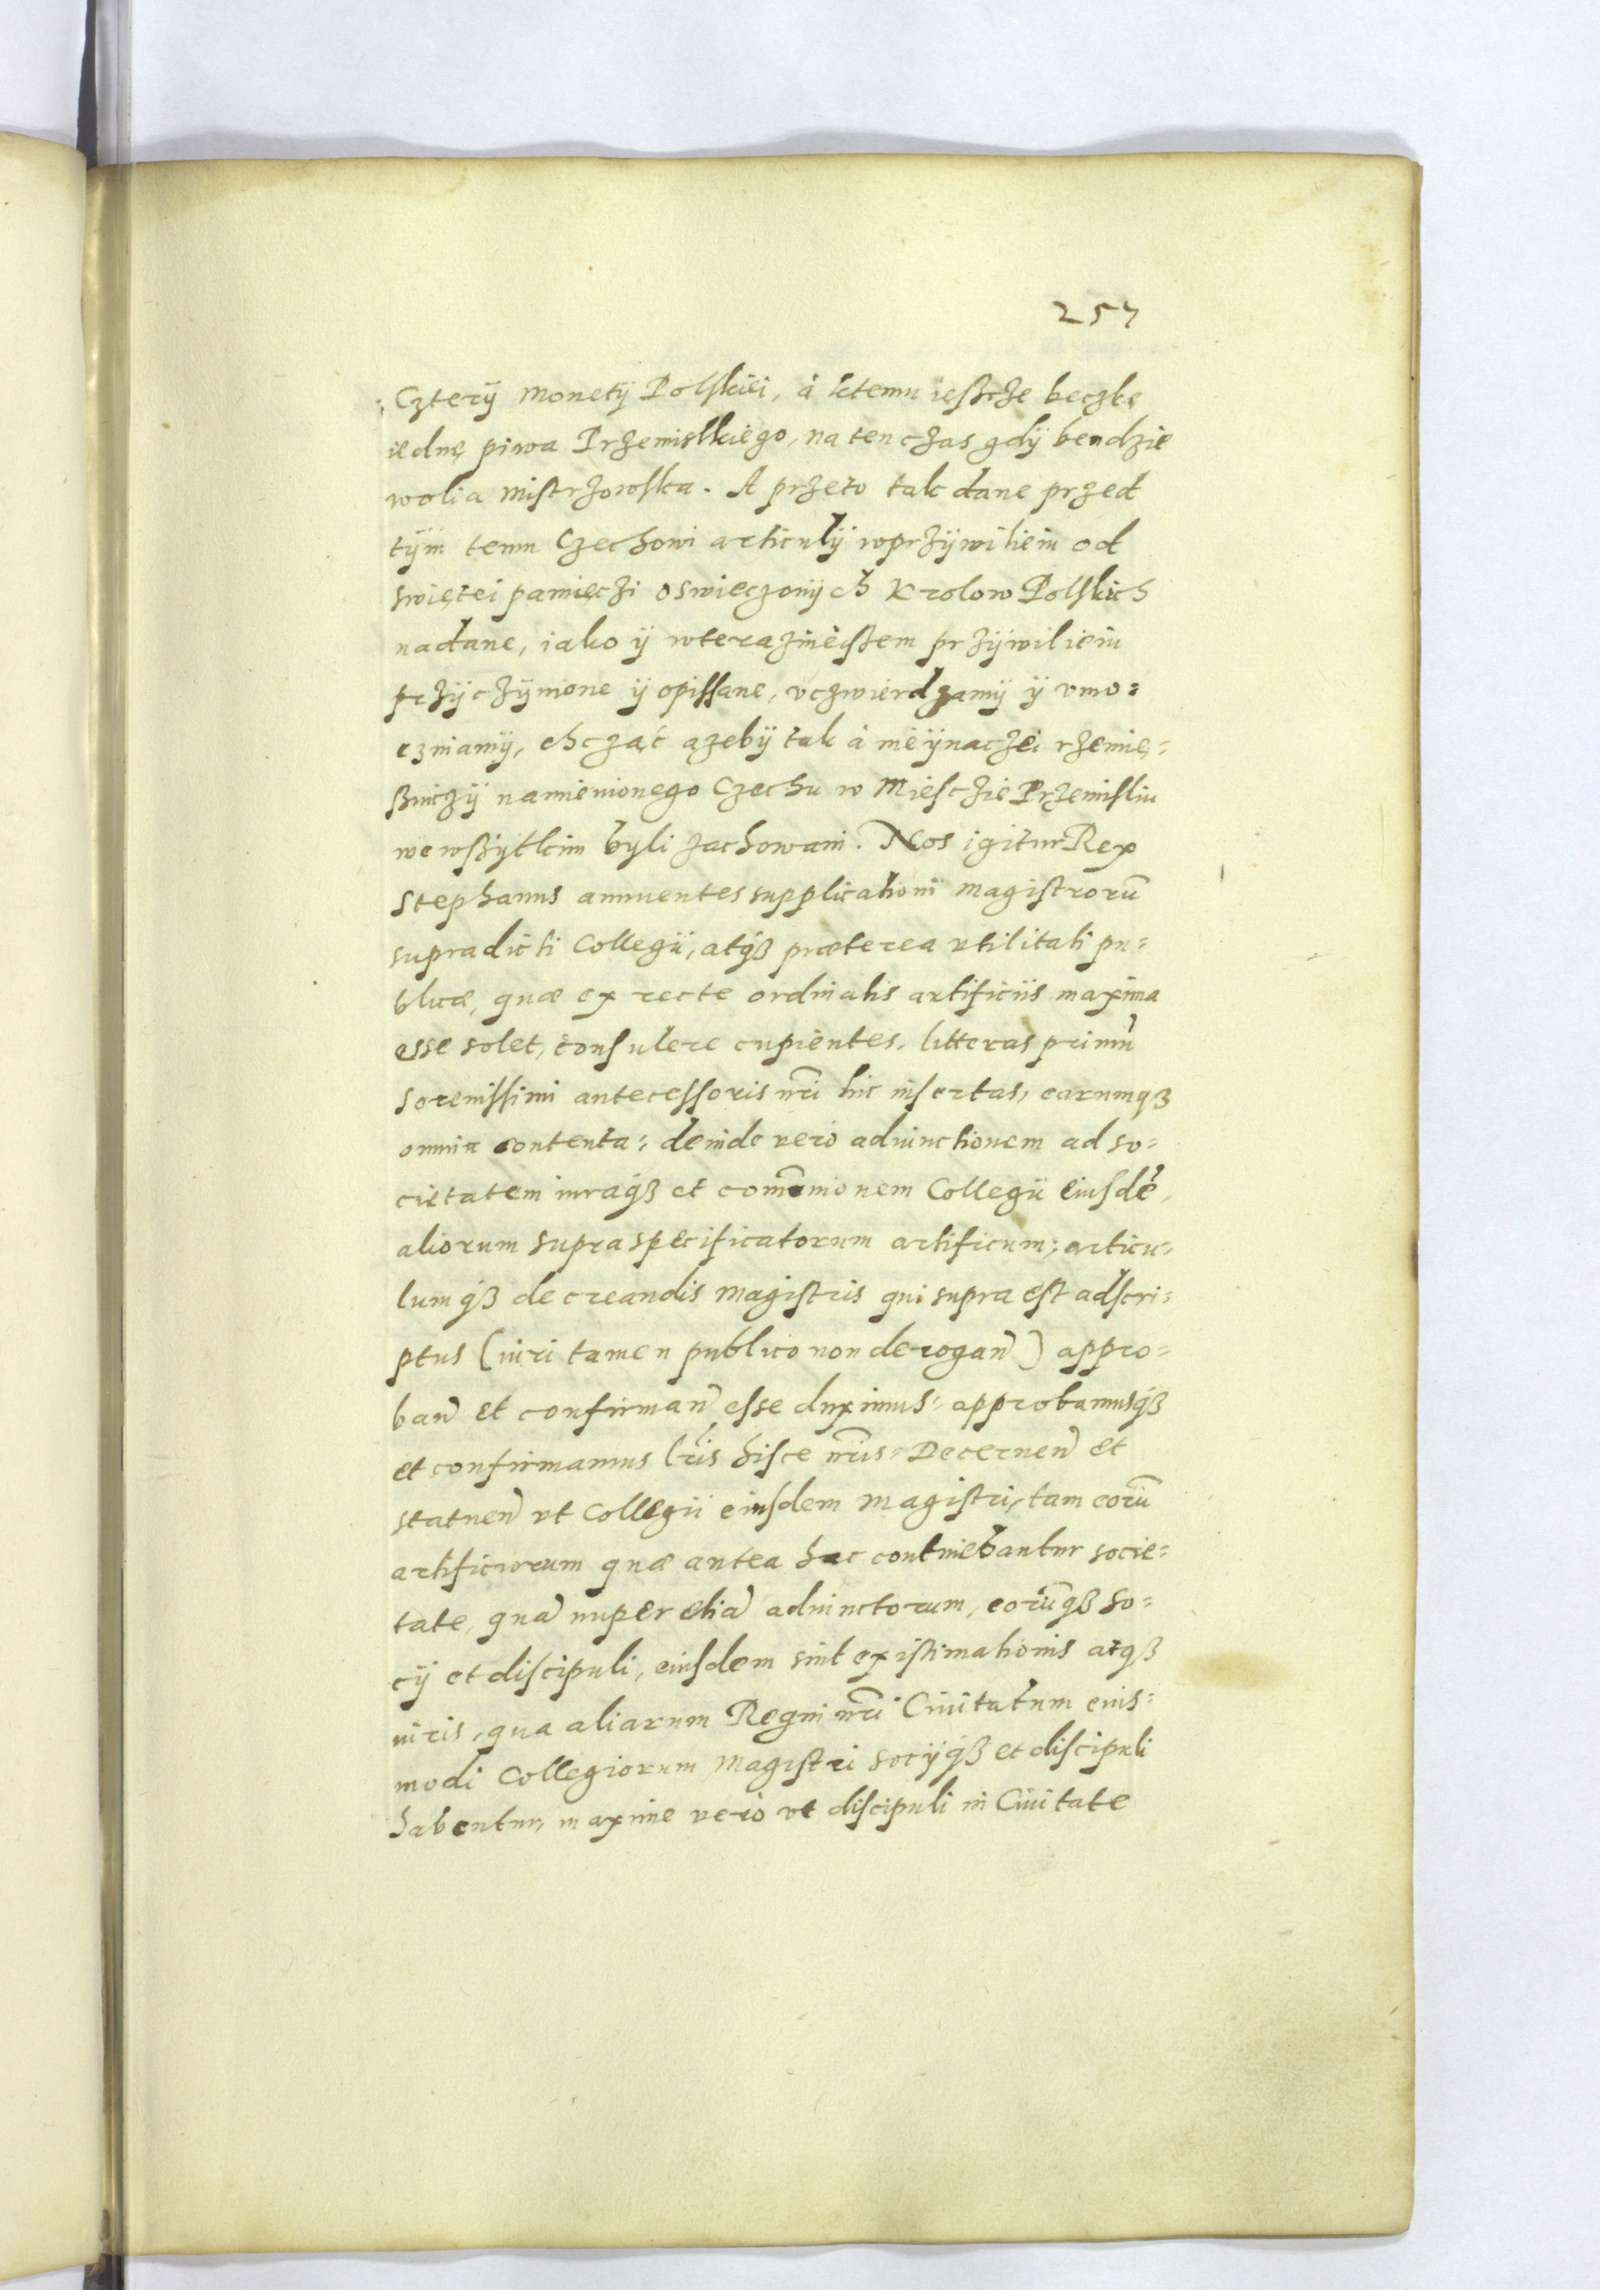 257
Cztery Monety Polskiei, á ktemu ieszcże beczkę
iednę piwa Przemislkiego, na ten czas gdÿ bendzie
wolia mistrzowska. A przeto tak dane przed
tÿm temu Czechowi articulÿ wprzÿwiliein od
swiętei pamięczi oswieczonÿch Krolow Polskich
nadane, iako ÿ wterazineiszem przÿwiliein
przÿczÿnione ÿ opissane, vczwierdzamÿ ÿ vmo=
czniamÿ, chcząć ązebÿ tak á nieÿnaczei rzemię=
sniczÿ namienionego Czechu w Miesczie Przemisliu
wewszÿtkim byli zachowani. Nos igitur Rex
Stephanus annuentes supplicationi magistrorũ
supradicti Collegii, atq́ꝫ præterea vtilitati pu=
blicæ, quæ ex recte ordinatis artificiis maxima
esse solet, consulere cupientes, litteras primũ
serenissimi antecessoris nr̃i hic insertas, earumqꝫ
omnia contenta: deinde vero adiunctionem ad so=
cietatem iuraq́ꝫ et com̃unionem Collegii eiusdẽ,
aliorum supraspecificatorum artificum; articu=
lumq́ꝫ de creandis magistris qui supra est adscri=
ptus (iuri tamen publico non derogan̄) appro=
ban̄ et confirman̄ esse duximus: approbamusq́ꝫ
et confirmamus lr̃is hisce nr̃is: Decernen̄ et
statuen̄ vt Collegii eiusdem magistri, tam eorũ
artificiorum quæ antea hac continebantur socie=
tate, quã nuper etiã adiunctorum, eorũq́ꝫ so=
cÿ et discipuli, eiusdem sint existimationis atqꝫ
iuris, qua aliarum Regni nr̃i Ciuitatum eius=
modi Collegiorum magistri socÿq́ꝫ et discipuli
habentur, maxime vero vt discipuli in Ciuitate